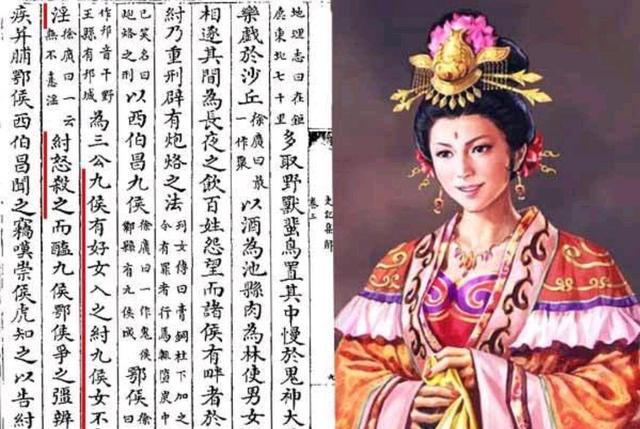 史記集解
卷三
九
地理志曰在鉅
鹿東北七十里
多取野獸蜚鳥置其中慢於鬼神大
樂戲於沙丘
徐廣曰㝡
一作聚
以酒為池縣肉為林使男女
相逐其間為長夜之飲百姓怨望而諸侯有畔者於
紂乃重刑辟有炮烙之法
列女傳曰膏銅柱下加之
令有罪者行焉輒墮炭中
已笑名曰
炮烙之刑
以西伯昌九侯
徐廣曰一作鬼侯
鄴縣有九侯城
鄂侯
徐
曰
作邘音于野
王縣有邘城
為三公九侯有好女入之紂九侯女不
淫
徐廣曰一云
無不憙淫
紂怒殺之而醢九侯鄂侯爭之彊辨
疾并脯鄂侯西伯昌聞之竊嘆崇侯虎知之以告紂